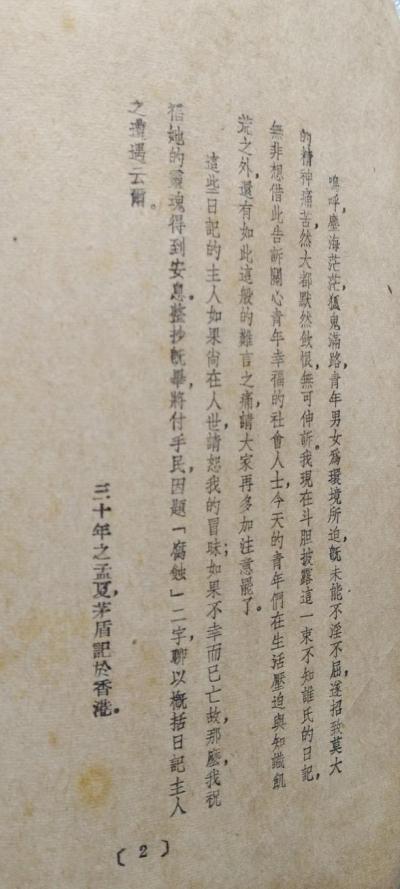 嗚呼，塵海茫茫，狐鬼滿路，青年男女為環境所迫，既未能不淫不屈，遂招致莫大
的精神痛苦，然大都默然飲恨，無可伸訴。我現在斗胆披露這一束不知誰氏的日記，
無非想借此告訴關心青年幸福的社會人士，今天的青年們在生活壓迫與知識飢
荒之外，還有如此這般的難言之痛，請大家再多加注意罷了。
這些日記的主人如果尚在人世，請恕我的冒昧；如果不幸而已亡故，那麼，我祝
禱她的靈魂得到安息。整抄既畢，將付手民，因題「腐蝕」二字，聊以概括日記主人
之遭遇云爾。
三十年之孟夏，茅盾記於香港。
〔2〕